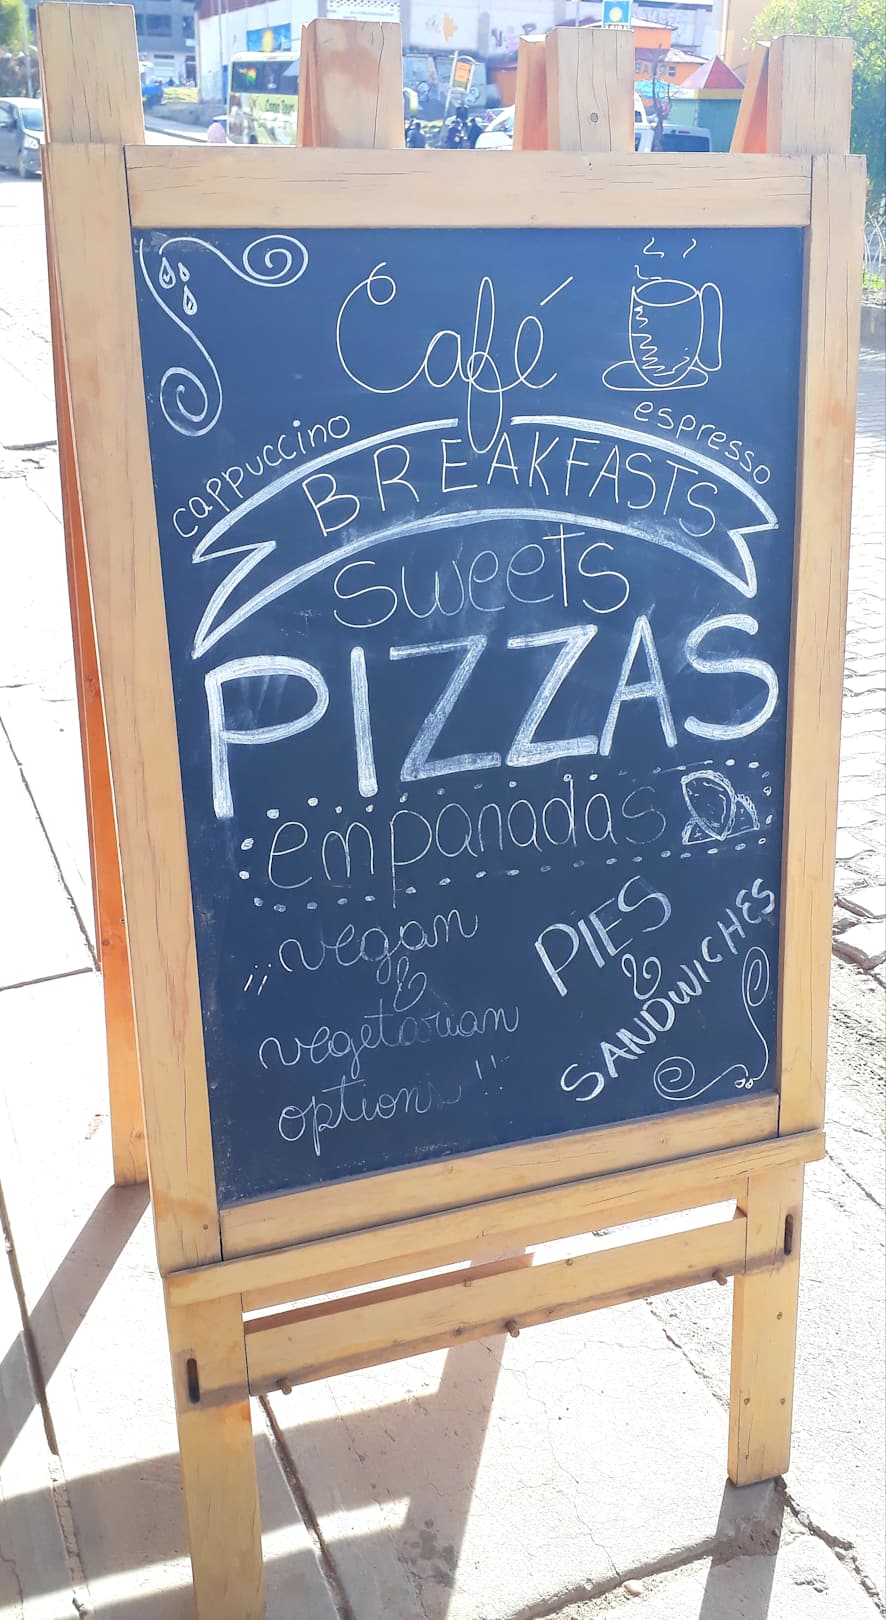 Café
cappuccino
espresso
BREAKFASTS
sweets
PIZZAS
empanadas
¡¡¡vegan
&
vegetarian
options!!!
PIES
&
SANDWICHES